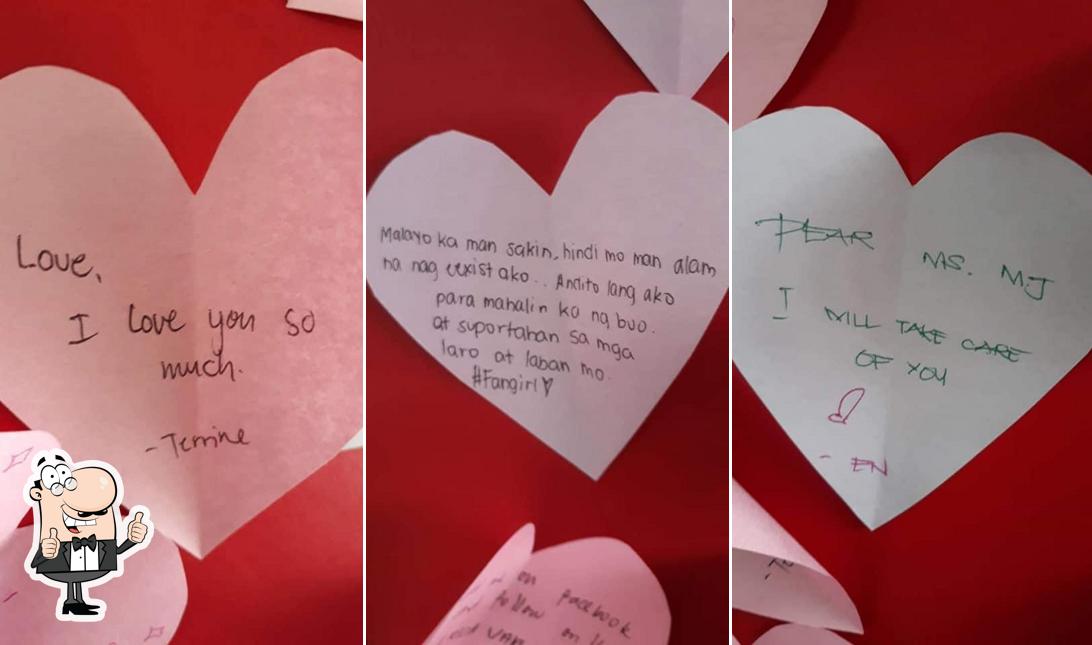 Love,
I love you so
much.
-Terrine
Malayo ka man sakin, hindi mo man alam
na nag eexist ako.. Andito lang ako
para mahalin ka ng buo.
at suportahan sa mga
laro at laban mo.
#Fangirl♡
on Facebook
follow on
DEAR MS. MJ
I WILL TAKE CARE
OF YOU
- EN